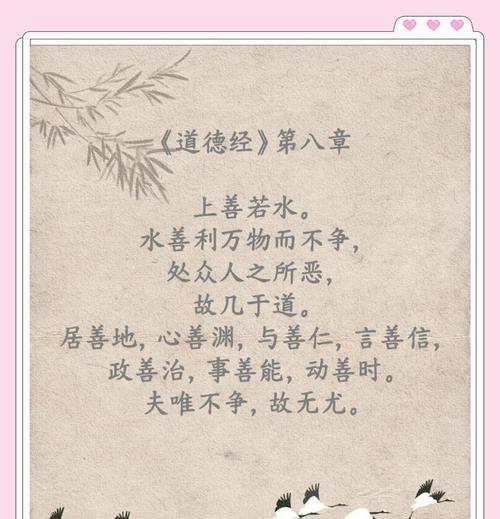 《道德经》第八章
上善若水。
水善利万物而不争，
处众人之所恶，
故几于道。
居善地，心善渊，与善仁，言善信，
政善治，事善能，动善时。
夫唯不争，故无尤。